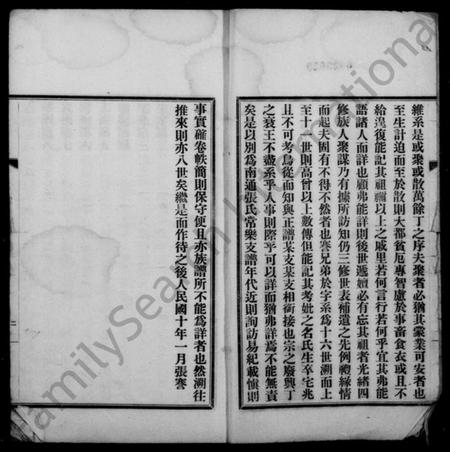 維系是或聚或散萬餘丁之序夫聚者必猶其棠業可安者也
至生計迫而至於散則大都貧厄專智慮於事畜食衣或且不
給遑復能記其祖禰以上之戚里若何言行若何乎宜其弗能
語諸人而詳也顧弗能詳則後世遞嬗必有忘其祖者光緒四
修族人聚謀乃有據所訪知仍三修世表補遺之先例禮緣情
而起夫固有不得不然者也謇兄弟於字系爲十六世溯而上
至十一世則高曾以上數傳但能記其考妣之名氏生卒宅兆
且不可考烏從而知與正譜某支某支相銜接也宗之廢興丁
之衰王不盡系乎人事則際乎可以詳而猶弗詳焉不能無責
矣是以別爲南通張氏常樂支譜年代近則詢訪易紀載愼則
事實確卷帙簡則保守便且亦族譜所不能爲詳者也然溯往
推來則亦八世矣繼是而作待之後人民國十年一月張謇
FamilySearch International